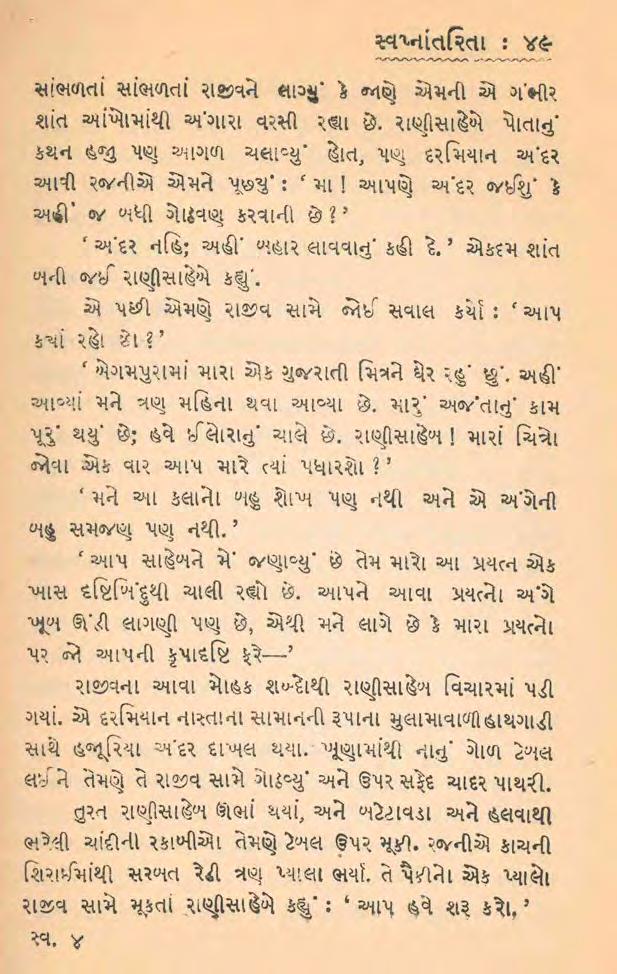 સ્વપ્નાંતરિતા : ૪૯
સાંભળતાં સાંભળતાં રાજીવને લાગ્યું કે જાણે એમની એ ગંભીર
શાંત આંખોમાંથી અંગારા વરસી રહ્યા છે. રાણીસાહેબે પોતાનું
કથન હજુ પણ આગળ ચલાવ્યું હોત, પણ દરમિયાન અંદર
આવી રજનીએ એમને પૂછયું : ‘ મા ! આપણે અંદર જઈશું કે
અહીં જ બધી ગોઠવણ કરવાની છે ? ’
‘ અંદર નહિ; અહીં બહાર લાવવાનું કહી દે. ’ એકદમ શાંત
બની જઈ રાણીસાહેબે કહ્યું.
એ પછી એમણે રાજીવ સામે જોઈ સવાલ કર્યો : ‘ આપ
કયાં રહો છો ? ’
‘ બેગમપુરામાં મારા એક ગુજરાતી મિત્રને ઘેર રહું છું. અહીં
આવ્યાં મને ત્રણ મહિના થવા આવ્યા છે. મારું અજંતાનું કામ
પૂરું થયું છે; હવે ઈલોરાનું ચાલે છે. રાણીસાહેબ ! મારાં ચિત્રો
જોવા એક વાર આપ મારે ત્યાં પધારશો ? ’
‘ મને આ કલાનો બહુ શોખ પણ નથી અને એ અંગેની
બહુ સમજણ પણ નથી. ’
‘ આપ સાહેબને મેં જણાવ્યું છે તેમ મારો આ પ્રયત્ન એક
ખાસ દષ્ટિબિંદુથી ચાલી રહ્યો છે. આપને આવા પ્રયત્નો અંગે
ખૂબ ઊંડી લાગણી પણ છે, એથી મને લાગે છે કે મારા પ્રયત્નો
પર જો આપની કૃપાદષ્ટિ ફરે—’
રાજીવના આવા મોહક શબ્દોથી રાણીસાહેબ વિચારમાં પડી
ગયાં. એ દરમિયાન નાસ્તાના સામાનની રૂપાના મુલામાવાળી હાથગાડી
સાથે હજૂરિયા અંદર દાખલ થયા. ખૂણામાંથી નાનું ગોળ ટેબલ
લઈને તેમણે તે રાજીવ સામે ગોઠવ્યું અને ઉપર સફેદ ચાદર પાથરી.
તુરત રાણીસાહેબ ઊભાં થયાં, અને બટેટાવડા અને હલવાથી
ભરેલી ચાંદીની રકાબીઓ તેમણે ટેબલ ઉપર મૂકી. રજનીએ કાચની
શિરાઈમાંથી સરબત રેડી ત્રણ પ્યાલા ભર્યા. તે પૈકીનો એક પ્યાલો
રાજીવ સામે મૂકતાં રાણીસાહેબે કહ્યું : ‘ આપ હવે શરૂ કરો. ’
સ્વ. ૪